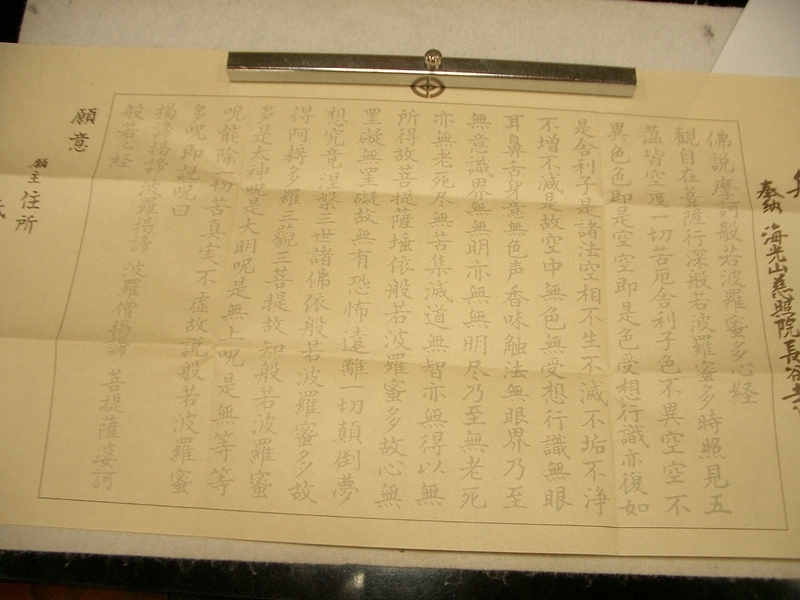 奉納 海光山慈照院長谷
佛説摩訶般若波羅蜜多心経
観自在菩薩行深般若波羅蜜多時照見五
蘊皆空度一切苦厄舎利子色不異空空不
異色色即是空空即是色受想行識亦復如
是舎利子是諸法空相不生不滅不垢不浄
不増不減是故空中無色無受想行識無眼
耳鼻舌身意無色声香味触法無眼界乃至
無意識界無無明亦無無明尽乃至無老死
亦無老死尽無苦集滅道無智亦無得以無
所得故菩提薩埵依般若波羅蜜多故心無
罣礙無罣礙故無有恐怖遠離一切顛倒夢
想究竟涅槃三世諸佛依般若波羅蜜多故
得阿耨多羅三藐三菩提故知般若波羅蜜
多是大神呪是大明呪是無上呪是無等等
呪能除一切苦真実不虚故説般若波羅蜜
多呪即説呪曰
揭諦揭諦 波羅揭諦 波羅僧揭諦 菩提薩婆訶
般若心経
願意
願主 住所